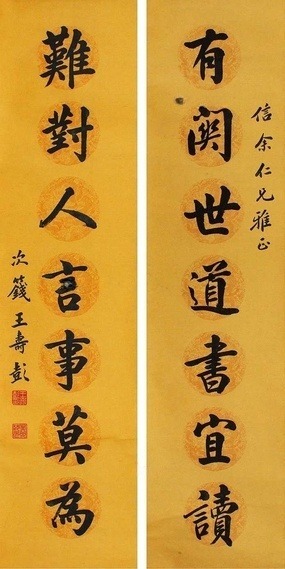 信余仁兄雅正
有關世道書宜讀
難對人言事莫為
次籛王壽彭